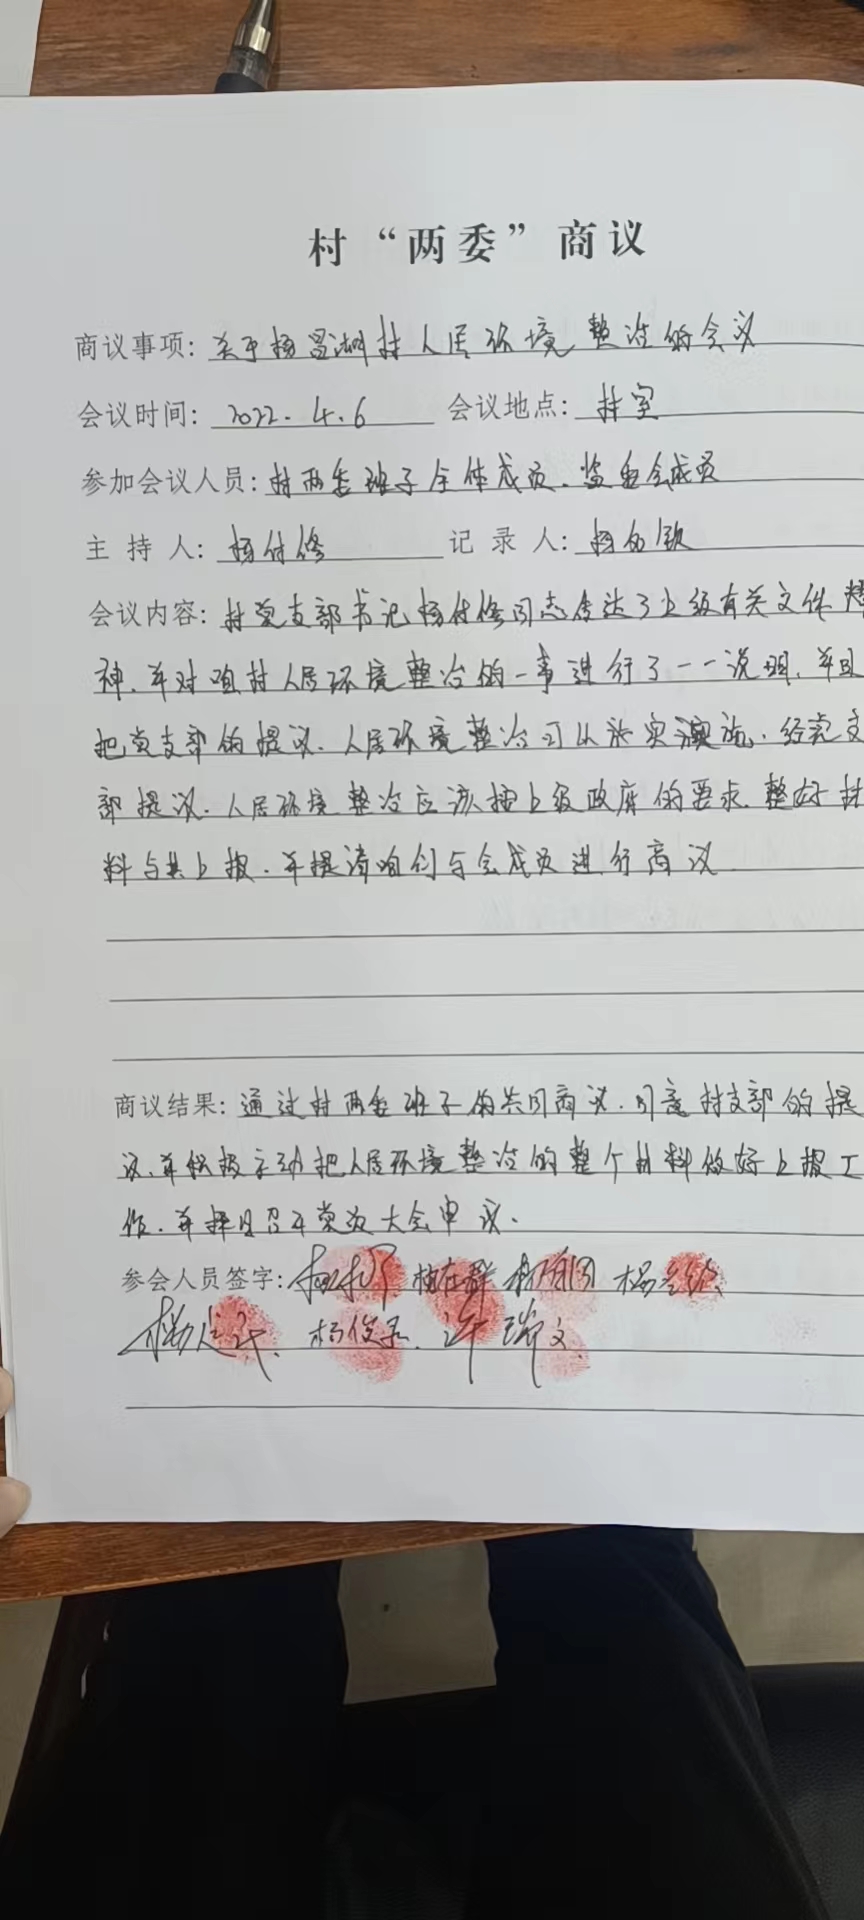 村“两委”商议
商议事项: 关于杨昌湖村人居环境整治的会议
会议时间: 2022.4.6 会议地点: 村室
参加会议人员: 村两委班子全体成员、监委会成员
主 持 人: 杨付修 记 录 人: 杨
会议内容: 村党支部书记杨付修同志传达了上级有关文件精
神、并对咱村人居环境整治的一事进行了一一说明、并且
把党支部的提议、人居环境整治可以
部提议、人居环境整治应该按上级政府的要求、整好材
料与其上报、并提请咱们与会成员进行商议
商议结果: 通过村两委班子的共同商议、同意村支部的提
议、并积极主动把人居环境整治的整个材料做好上报工
作、并择日召开党员大会审议、
参会人员签字:
杨俊 许瑞文